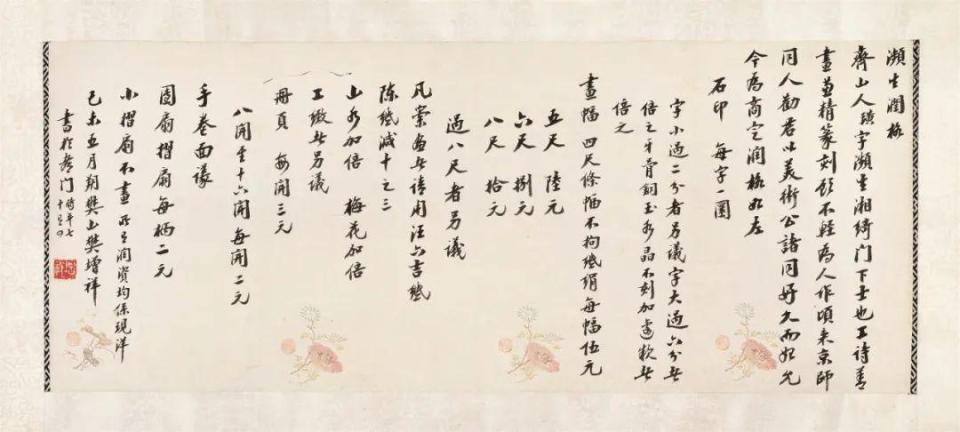 瀕生潤格
齊山人璜字瀕生湘綺門下士也工詩善
畫並精篆刻顧不輕為人作頃來京師
同人勸君以美術公諸同好久而始允
今為商定潤格如左
石印 每字一圓
字小過二分者另議字大過六分者
倍之牙骨銅玉水晶不刻加邊款者
倍之
畫幅 四尺條幅不拘紙絹每幅伍元
五尺 陸元
六尺 捌元
八尺 拾元
過八尺者另議
凡索畫者請用汪六吉紙
陳紙減十之三
山水加倍 梅花加倍
工緻者另議
冊頁 每開三元
八開至十六開每開二元
手卷面議
團扇摺扇每柄二元
小摺扇不畫 所有潤資均係現洋
己未五月朔樊山樊增祥
書於都門時年七
十有四